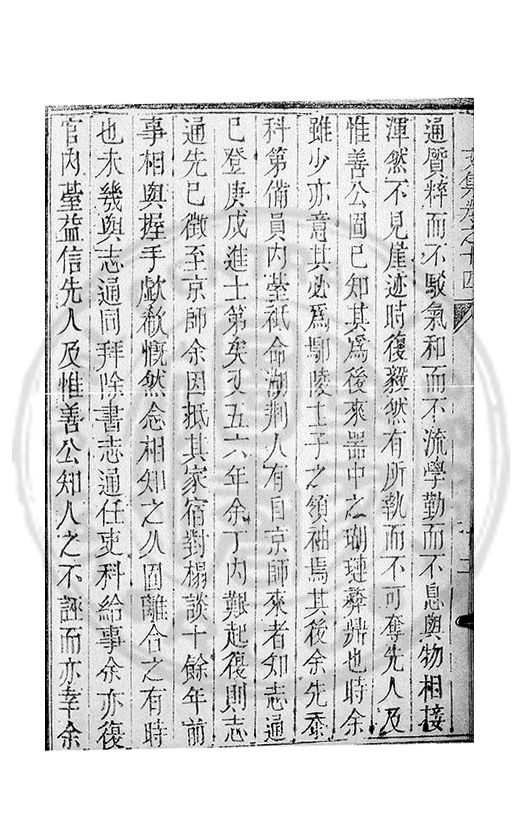 文集卷之十四
通質粹而不駁氣和而不流學勤而不息與物相接
渾然不見崖迹時復毅然有所執而不可奪先人及
惟善公固已知其爲後來器中之瑚璉彝鼎也時余
雖少亦意其必爲鄢陵士子之領袖焉其後余先忝
科第備員内臺祇命湖荆人有自京師來者知志通
已登庚戌進士第矣又五六年余丁内艱起復則志
通先已徵至京師余因抵其家宿對榻談十餘年前
事相與握手歔欷慨然念相知之人固離合之有時
也未幾與志通同拜除書志通任吏科給事余亦復
官内臺益信先人及惟善公知人之不誣而亦幸余